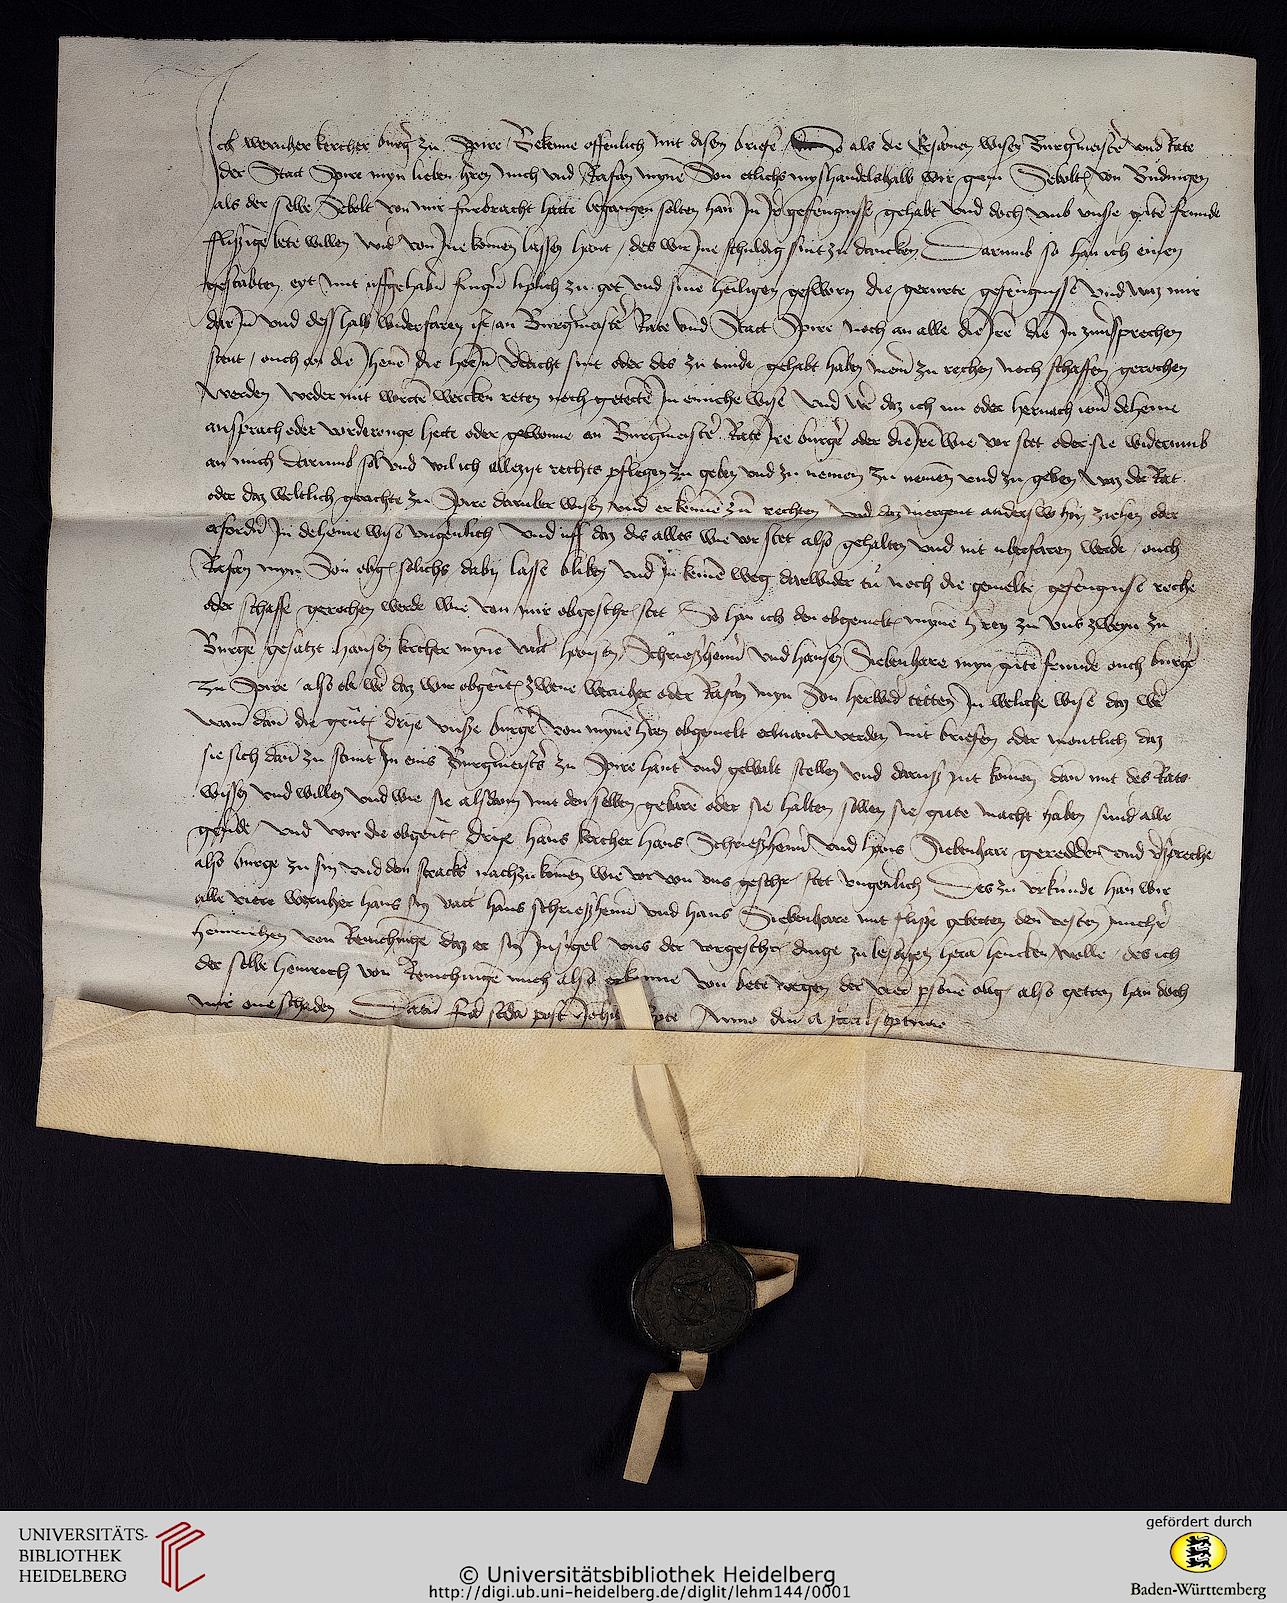 Ich wernher kercher burg zu Spire Bekenne offenlich mit disem briefe So als die Ersamen wisen Burgermeister und Rate
der Statt Spire myn lieben hren mich und Rafan myne Son etlichs myszhandels halb wir gein Sebolt von Budingen
als der selbe Sebolt von mir furbracht hette begangen solten han In Ir gefengnisse gehabt und doch umb unser gute frunde
flissige bete willen und von Ine komen lassen hant des wir Ine schuldig sint zu dancken Darumb so han ich einen
gestabten eyt mit uffgehabn fingern liplich zu got und sine heiligen gesworn die gerurte gefengnisse und waz mir
dar Inn und desshalb widerfaren ist an Burgermeister Rate und Statt Spire noch an alle die Ire die In zuversprechen
stent ouch an die Ihene die herInn verdacht sint oder des zu tunde gehabt haben niemer zu rechen noch schaffen gerochen
werden weder mit worten wercken reten noch getetten In eyniche wise und wer daz ich nu oder hernach iemer deheine
ansprach oder vorderunge hette oder gewonne an Burgermeister Rate Ire burger oder die Ire wie vor stet oder sie widerumb
an mich Darumb sol und wil ich allezyt rechts pflegen zu geben und zu nemen zu nemen und zu geben waz der Rat
oder daz weltlich gerichte zu Spire daruber wisen und erkennen zum rechten und daz niergent anderswo hin ziehen oder
erfordern In deheine wise ungeverlich Und uff daz dis alles wie vor stet also gehalten und nit uberfaren werde ouch
Rafan myn Son obg solichs daby lasse bliben und In keinen weg darwider tu noch die gemelte gefengnisse reche
oder schaffe gerochen werde wie von mir obgeschr stet So han ich den obgemelt mynen hern zu uns zweyn zu
Burgen gesatzt hansen kercher mynen vatter hansen Schrieszheim und hansen Siebenhare myn guten frunde ouch burger
zu Spire also ob wer daz wir obgent zwene wernher oder Rafan myn Son herwider tetten In welche wise daz wer
wann dan die gent drye unser burgen von mynen hren obgemelt ermant werden mit briefen oder montlich daz
sie sich dan zu stunt In eins Burgermeisters zu Spire hant und gewalt stellen und darusz nit komen dan mit des Rats
wissen und willen und wie sie alsdann mit den selben gebaren oder sie halten sollen sie gute macht haben sunder alle
geverde Und wir die obgent drye hans kercher hans Schrieszheim und hans Siebenhare geredden und versprechen
also burge zu sin und den stracks nachzukomen wie vor von uns geschr stet ungeverlich Des zu urkunde han wir
alle viere wernher hans sin vatter hans schrieszheim und hans Siebenhare mit flisse gebetten den vesten juncher
heinrichen von Remchingen daz er sin Insigel uns der vorgeschr dinge zu besagen heran hencken welle des ich
der selbe heinrich von Remchingen mich also erkenne von bete wegen der vier persone obg also getan han doch
mir one schaden Datum secunda post Anno dni
UNIVERSITÄTS-
BIBLIOTHEK
HEIDELBERG
© Universitätsbibliothek Heidelberg
http://digi.ub.uni-heidelberg.de/diglit/lehm144/0001
gefördert durch
Baden-Württemberg